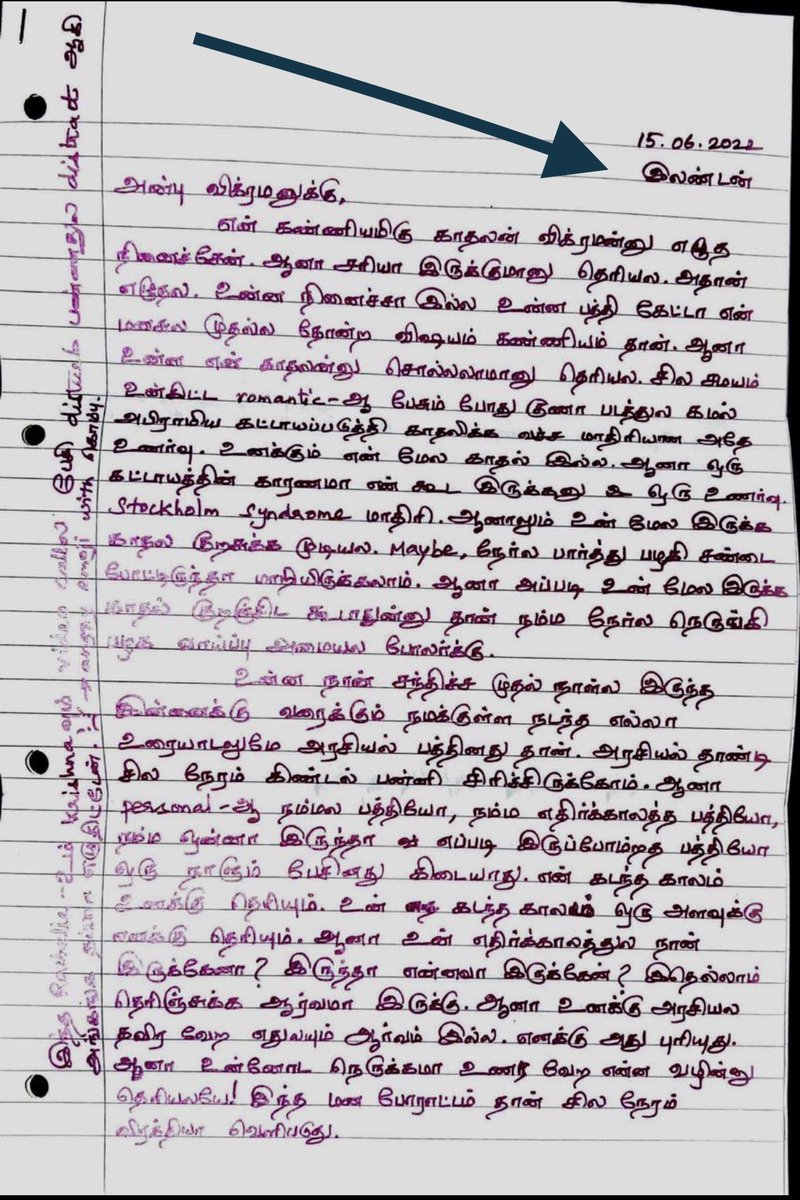 15.06.2022
இலண்டன்
அன்பு விக்ரமனுக்கு,
என் கண்ணியமிகு காதலன் விக்ரமன்னு எழுத
நினைச்சேன். ஆனா சரியா இருக்குமானு தெரியல. அதான்
எழுதல. உன்ன நினைச்சா இல்ல உன்ன பத்தி கேட்டா என்
மனசுல முதல்ல தோன்ற விஷயம் கண்ணியம் தான். ஆனா
உன்ன என் காதலன்னு சொல்லலாமானு தெரியல. சில சமயம்
உன்கிட்ட romantic-ஆ பேசும் போது குணா படத்துல கமல்
அபிராமிய கட்டாயப்படுத்தி காதலிக்க வச்ச மாதிரியான அதே
உணர்வு. உனக்கும் என் மேல காதல் இல்ல. ஆனா ஒரு
கட்டாயத்தின் காரணமா என் கூட இருக்கனு ஒரு உணர்வு.
Stockholm Syndrome மாதிரி. ஆனாலும் உன் மேல இருக்க
காதல குறைக்க முடியல. Maybe, நேர்ல பார்த்து பழகி சண்டை
போட்டிருந்தா மாறியிருக்கலாம். ஆனா அப்படி உன் மேல இருக்க
காதல் குறைஞ்சிட கூடாதுன்னு தான் நம்ம நேர்ல நெருங்கி
பழக வாய்ப்பு அமையல போலர்க்கு.
உன்ன நான் சந்திச்ச முதல் நாள்ல இருந்த
இன்னைக்கு வரைக்கும் நமக்குள்ள நடந்த எல்லா
உரையாடலுமே அரசியல் பத்தினது தான். அரசியல் தாண்டி
சில நேரம் கிண்டல் பன்னி சிரிச்சிருக்கோம். ஆனா
personal-ஆ நம்மல பத்தியோ, நம்ம எதிர்காலத்த பத்தியோ,
நம்ம ஒன்னா இருந்தா எப்படி இருப்போம்றத பத்தியோ
ஒரு நாளும் பேசினது கிடையாது. என் கடந்த காலம்
உனக்கு தெரியும். உன் கடந்த காலம் ஒரு அளவுக்கு
எனக்கு தெரியும். ஆனா உன் எதிர்க்காலத்துல நான்
இருக்கேனா? இருந்தா என்னவா இருக்கேன்? இதெல்லாம்
தெரிஞ்சுக்க ஆர்வமா இருக்கு. ஆனா உனக்கு அரசியல
தவிர வேற எதுலயும் ஆர்வம் இல்ல. எனக்கு அது புரியுது.
ஆனா உன்னோட நெருக்கமா உணர வேற என்ன வழின்னு
தெரியலயே! இந்த மன போராட்டம் தான் சில நேரம்
விரக்தியா வெளிபடுது.
இந்த Krishna வும் video callல பேசி disturb பண்ணதுல distract ஆகி
அங்கங்க தப்பா எழுதிட்டேன். angry emoji with கொம்பு.